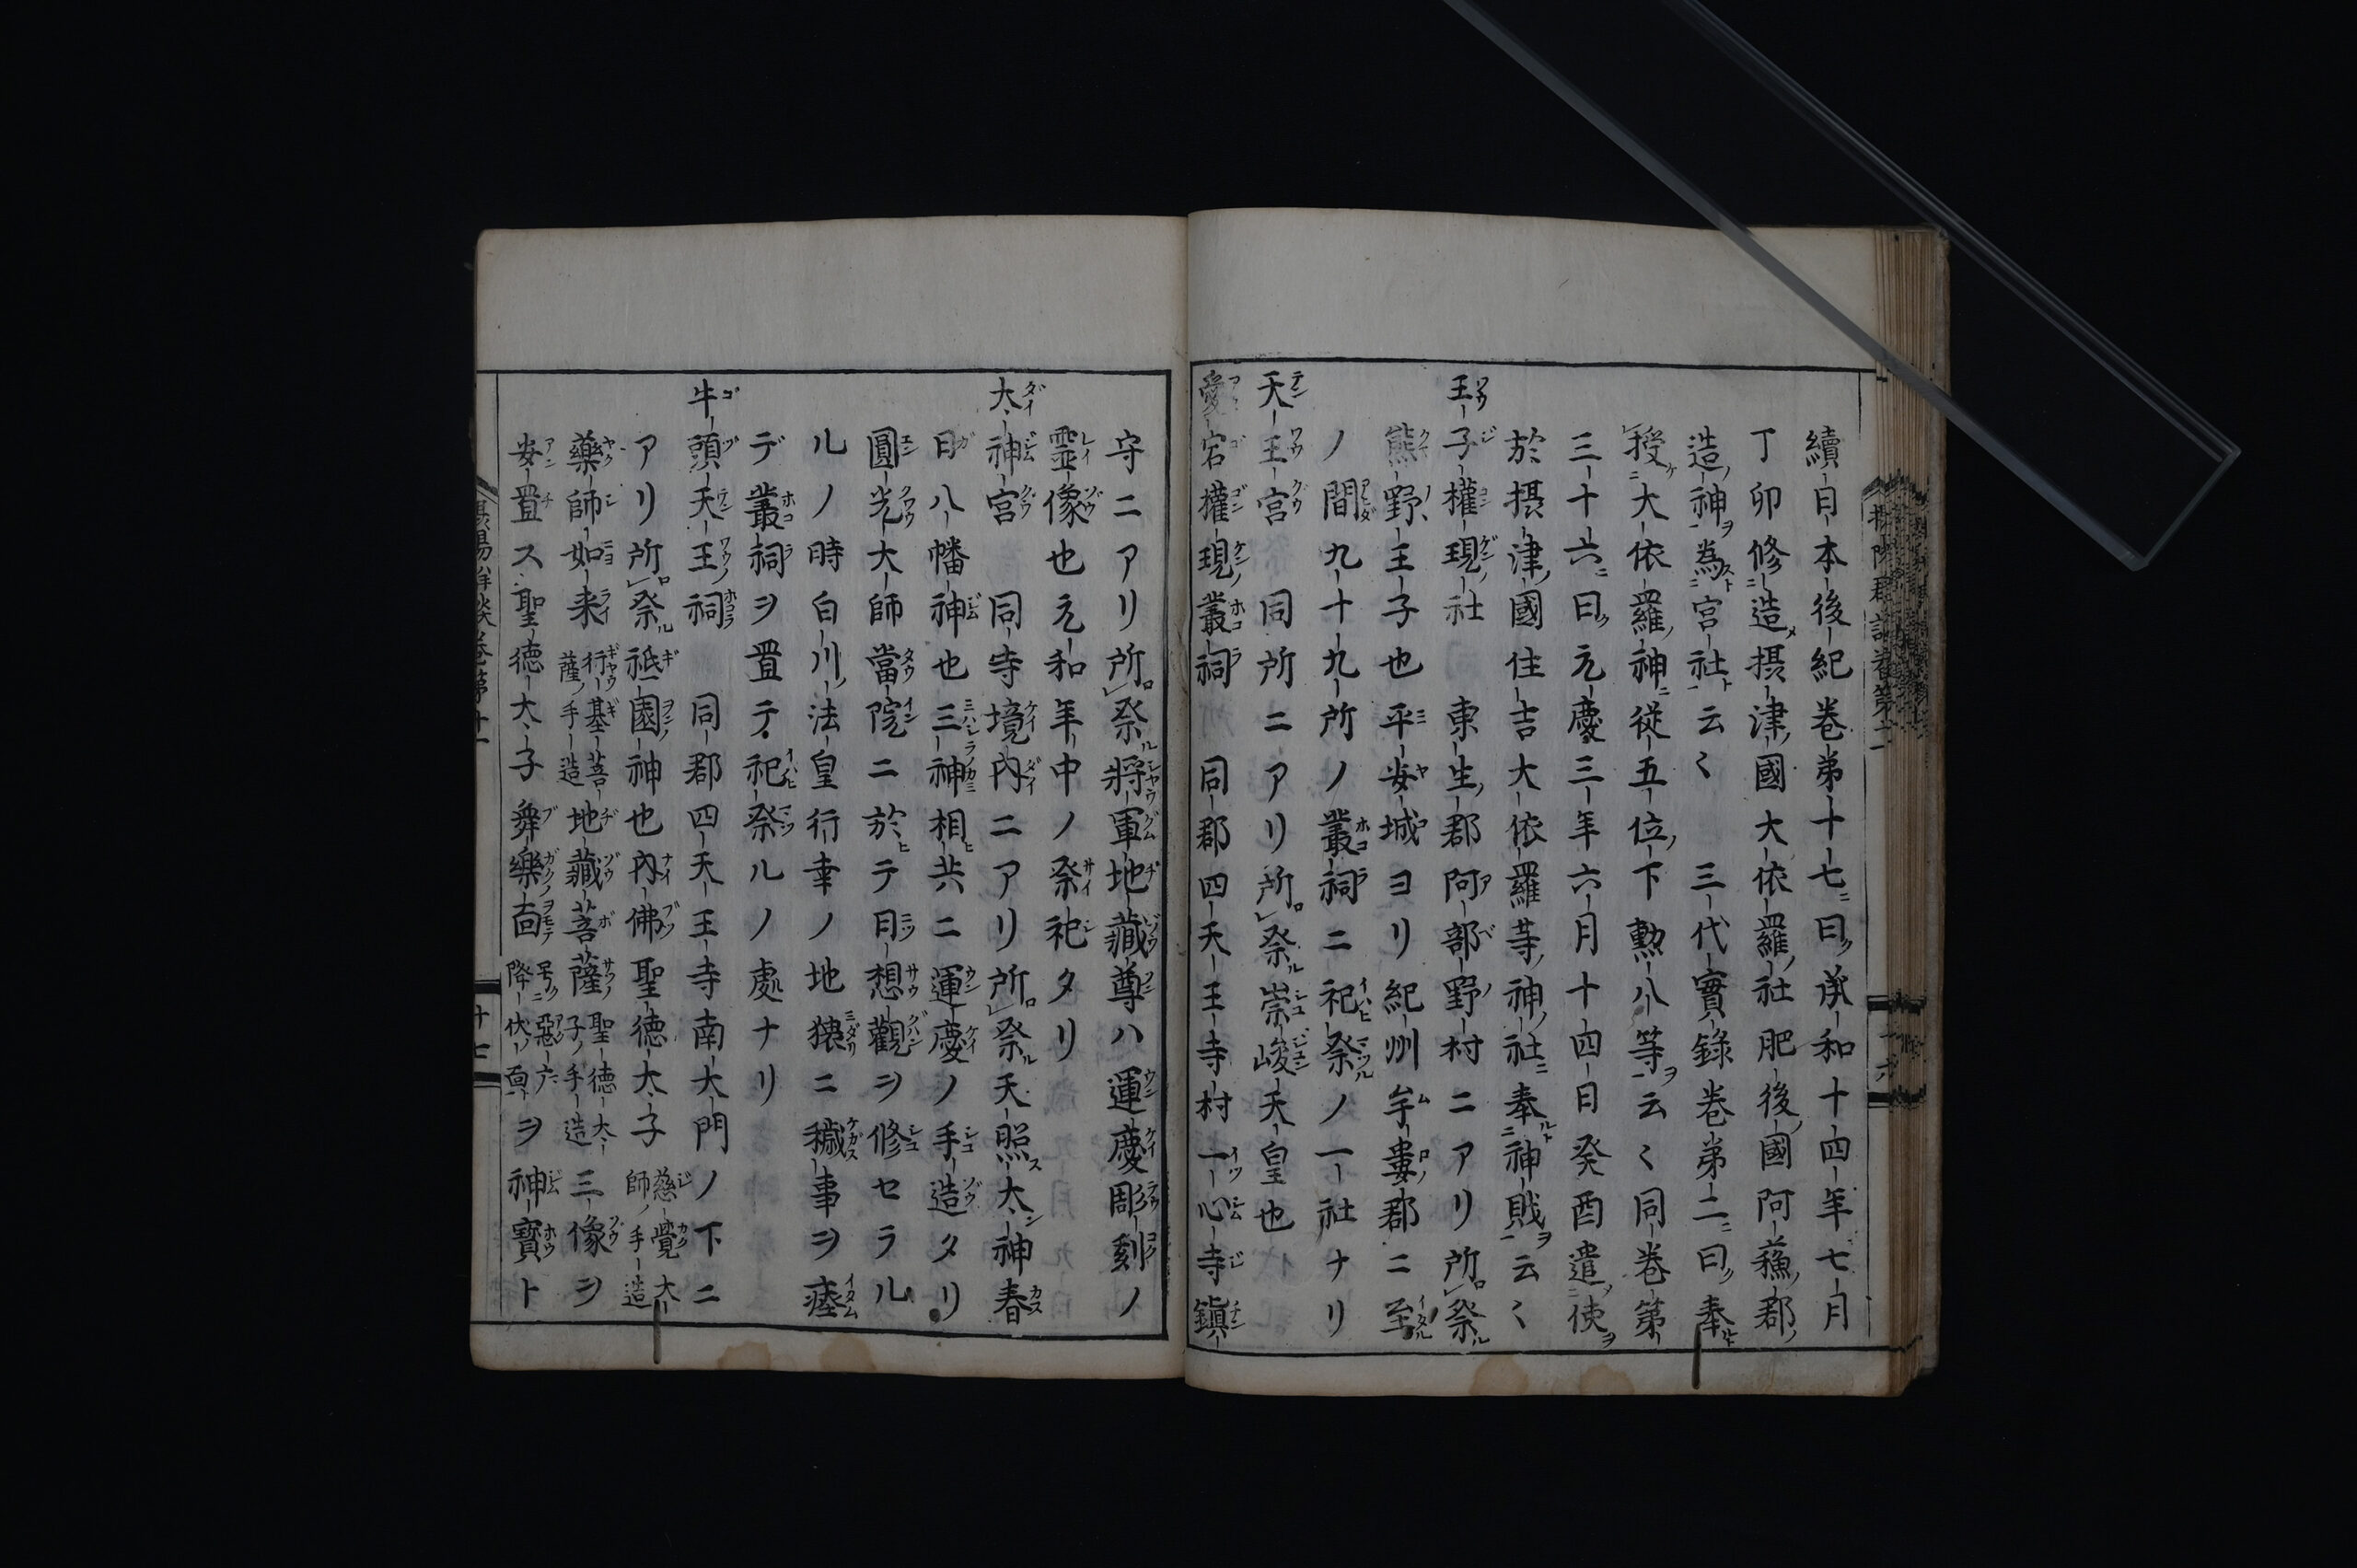 續日本後紀巻第十七曰承和十四年七月
丁卯修造摂津國大依羅社肥後國阿蘓郡
造神為宮社云〻　三代實錄巻第二曰奉
授大依羅神従五位下勲八等云〻同巻第
三十六曰元慶三年六月十四日癸酉遣使
於摂津國住吉大依羅等神社奉神財云〻
王子權現社　東生郡阿部野村ニアリ所祭
熊野王子也平安城ヨリ紀州牟婁郡ニ至
ノ間九十九所ノ叢祠ニ祀祭ノ一社ナリ
天王宮　同所ニアリ所祭崇峻天皇也
愛宕權現叢祠　同郡四天王寺村一心寺鎭
守ニアリ所祭將軍地藏尊ハ運慶彫刻ノ
霊像也元和年中ノ祭祀タリ
大神宮　同寺境內ニアリ所祭天照大神春
日八幡神也三神相共ニ運慶ノ手造タリ
圓光大師當院ニ於テ日想觀ヲ修セラル
ルノ時白川法皇行幸ノ地猥ニ穢事ヲ痓
デ叢祠ヲ置テ祀祭ルノ處ナリ
牛頭天王祠　同郡四天王寺南大門ノ下ニ
アリ所祭祇園神也內佛聖徳太子慈覺大師ノ手造
藥師如来行基菩薩ノ手造地藏菩薩聖徳太子ノ手造三像ヲ
安置ス聖徳太子舞樂面号惡六降伏面ヲ神寶ト